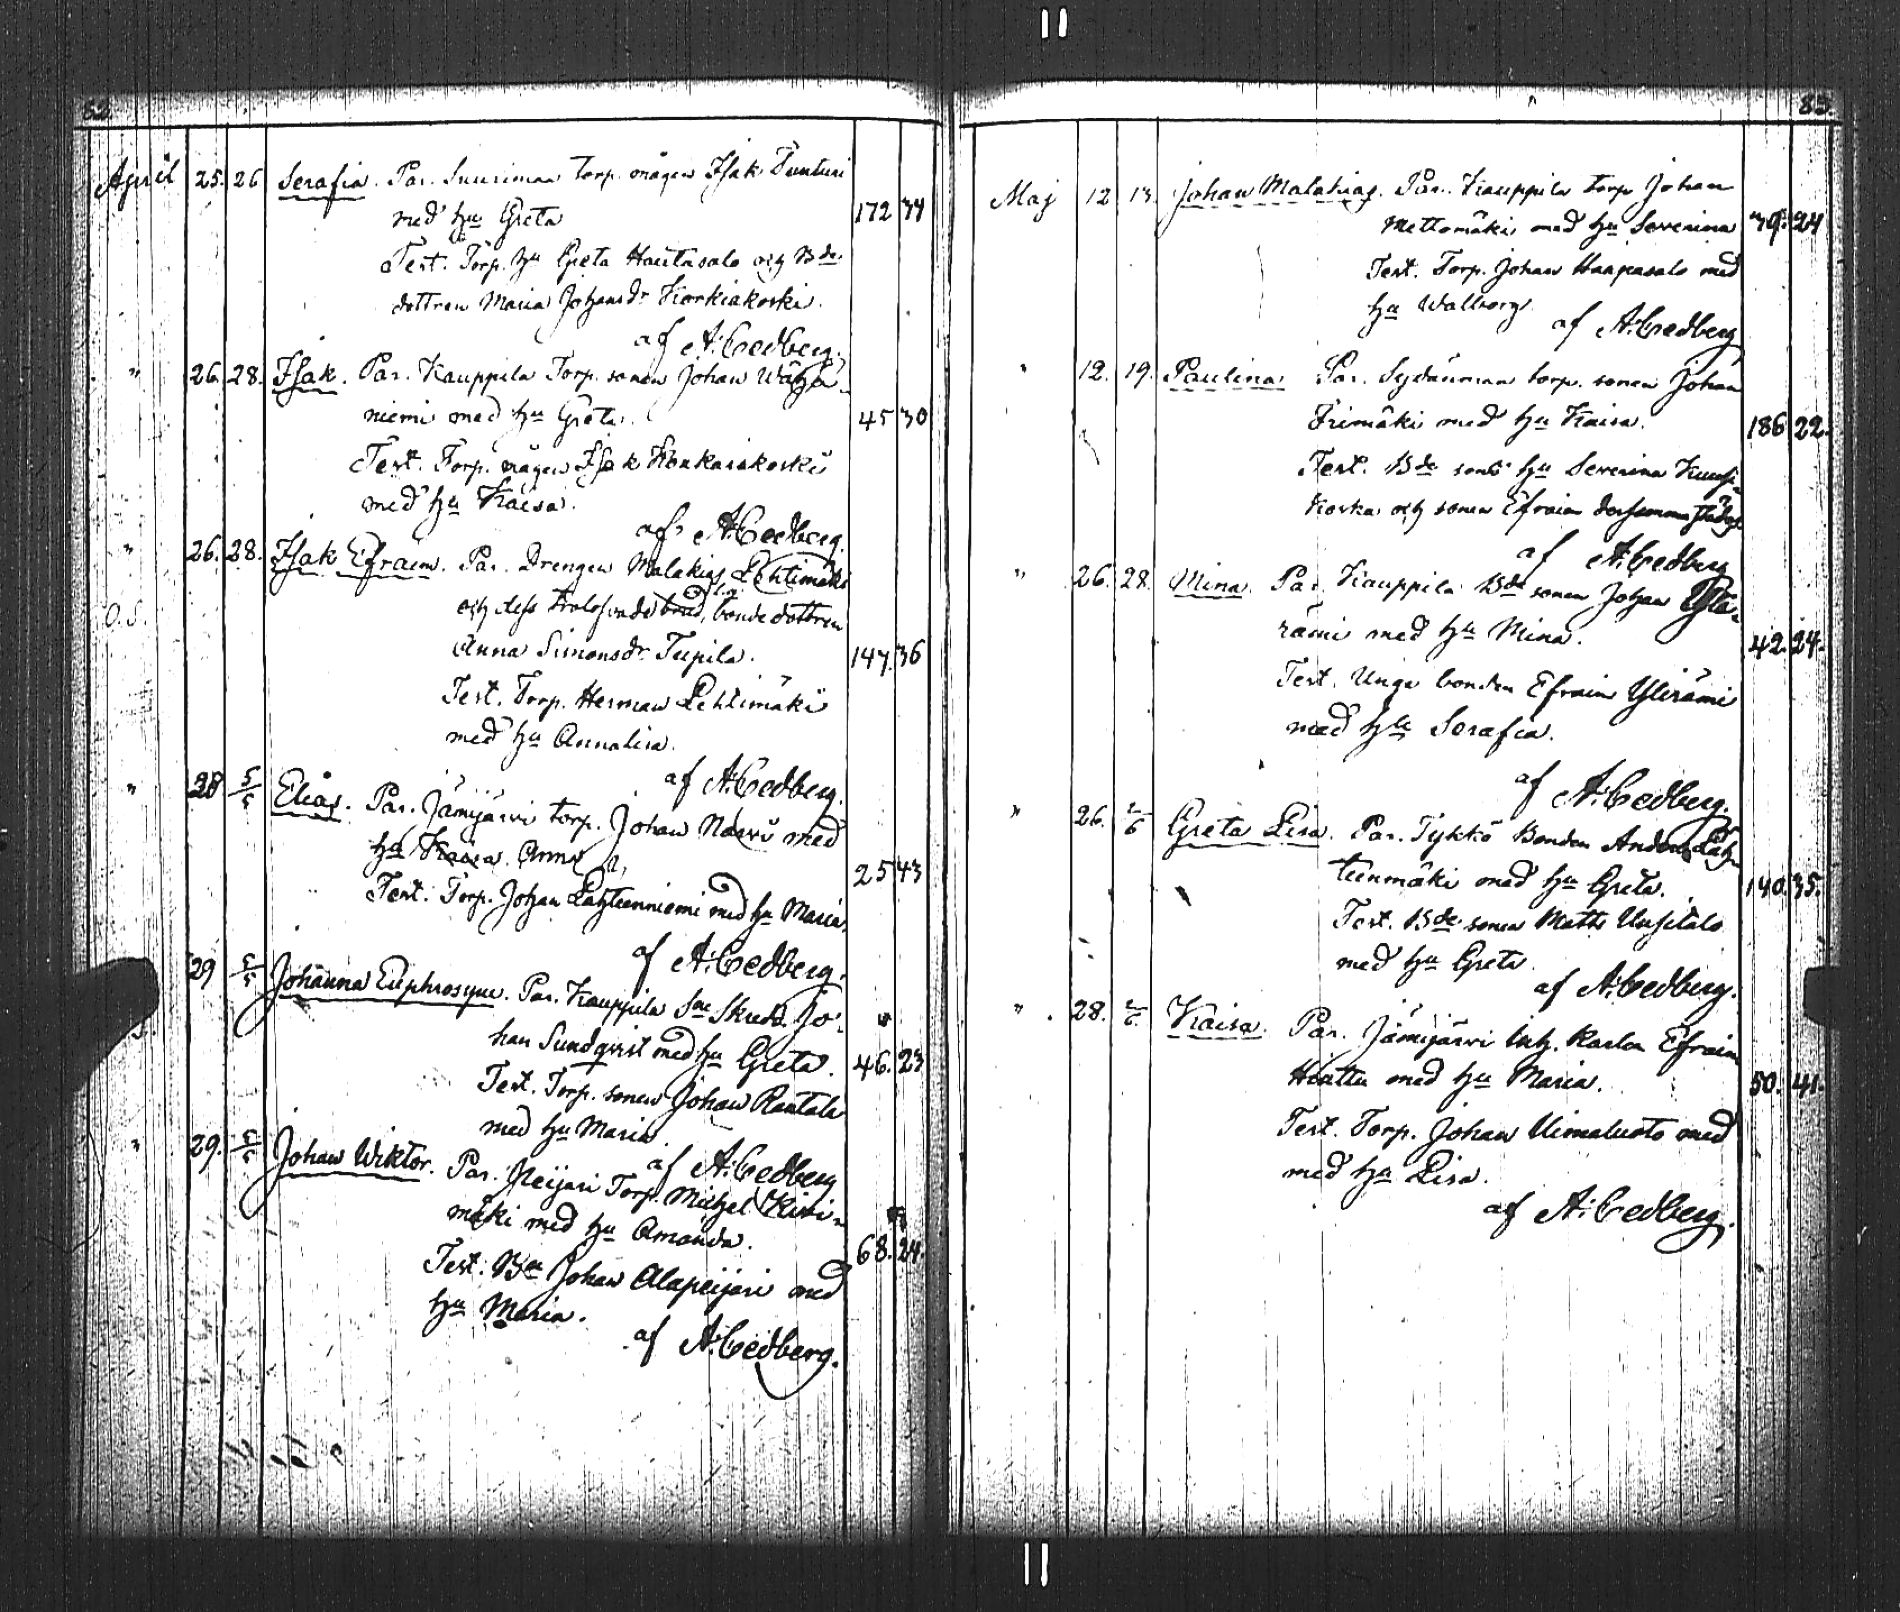 82.
April 25. 26 Serafia. Par. Suurimaa torp. mågen Isak Tunturi
med hu Greta 172 34
Test. Torp. hu Greta Hautasalo och Bde
dottren Maria Johansdr Korkiakoski.
af A. Cedberg.
" 26. 28. Isak. Par. Kauppila Torp. sonen Johan Wähä-
niemi med hu Greta. 45 30
Test. Torp. mågen Isak Kankariakoski
med hu Kaisa.
af A. Cedberg.
" 26. 28. Isak Efraim. Par. Drengen Malakias Lehtimäki
och dess trolofvade brud, bondedottren
O.S. Anna Simonsdr Tupila. 147. 36
Test. Torp. Herman Lehtimäki
med hu Annalisa.
af A. Cedberg.
" 28 5/5 Elias. Par. Jämijärvi torp. Johan Narvi med
hu Kaisa Anna 25 43
Test. Torp. Johan Lahteenniemi med hu Maria.
af A. Cedberg.
29 5/5 Johanna Euphrosyne. Par. Kauppila Sne Skredd. Jo-
han Sundqvist med hu Greta. 46. 23
Test. Torp. sonen Johan Rantala
med hu Maria.
af A. Cedberg
" 29. 5/5 Johan Wiktor. Par. Peijari Torp. Michel Kivi-
mäki med hu Amanda. 68. 24.
Test. Bn Johan Alapeijari med
hu Maria.
af A. Cedberg.
83.
Maj 12 13. Johan Malakias. Par. Kauppila torp Johan
Mettomäki med hu Severina 39. 24
Test. Torp. Johan Haapasalo med
hu Walborg.
af A. Cedberg
" 12. 19. Paulina Par. Sydänmaa torp. sonen Johan
Frimäki med hu Kaisa. 186 22.
Test. Bde sons hu Severina Kuusi-
koska och sonen Efraim dersammastädes
af A. Cedberg
" 26. 28. Mina. Par. Kauppila Bde sonen Johan Yli-
rämi med hu Mina. 42. 24.
Test. Unge bonden Efraim Ylirämi
med hu Serafia.
af A. Cedberg.
" 26. 2/6 Greta Lisa. Par. Tykkö Bonden Anders Läh-
teenmäki med hu Greta. 140. 35.
Test. Bde sonen Matts Uusitalo
med hu Greta
af A. Cedberg.
" 28. 2/6 Kaisa. Par. Jämijärvi inh. karlen Efraim
Hiattu med hu Maria. 50. 41.
Test. Torp. Johan Uimaluoto med
med hu Lisa.
af A. Cedberg.